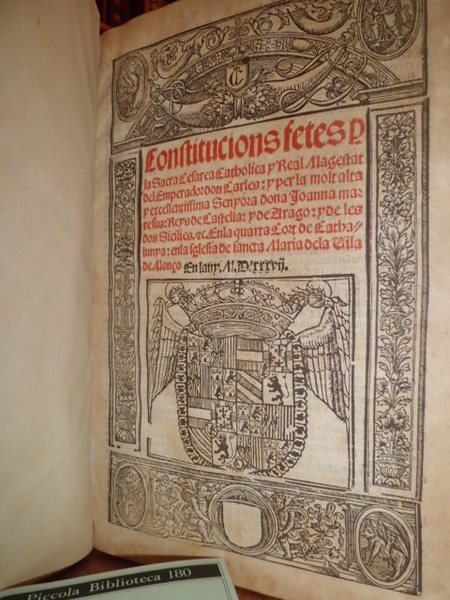 C
Constitucions fetes p
la Sacra Cesarea Catholica y Real Magestat
del Emperador don Carles: y per la molt alta
y excellentissima Senyora dona Joanna mare
sua: Reys de Castella: y de Arago: y de les
dos Sicilies. &c. En la quarta Cort de Catha-
lunya: en la iglesia de sancta Maria dela Vila
de Monço En lany. M.D.xxxvij.
Piccola Biblioteca 180